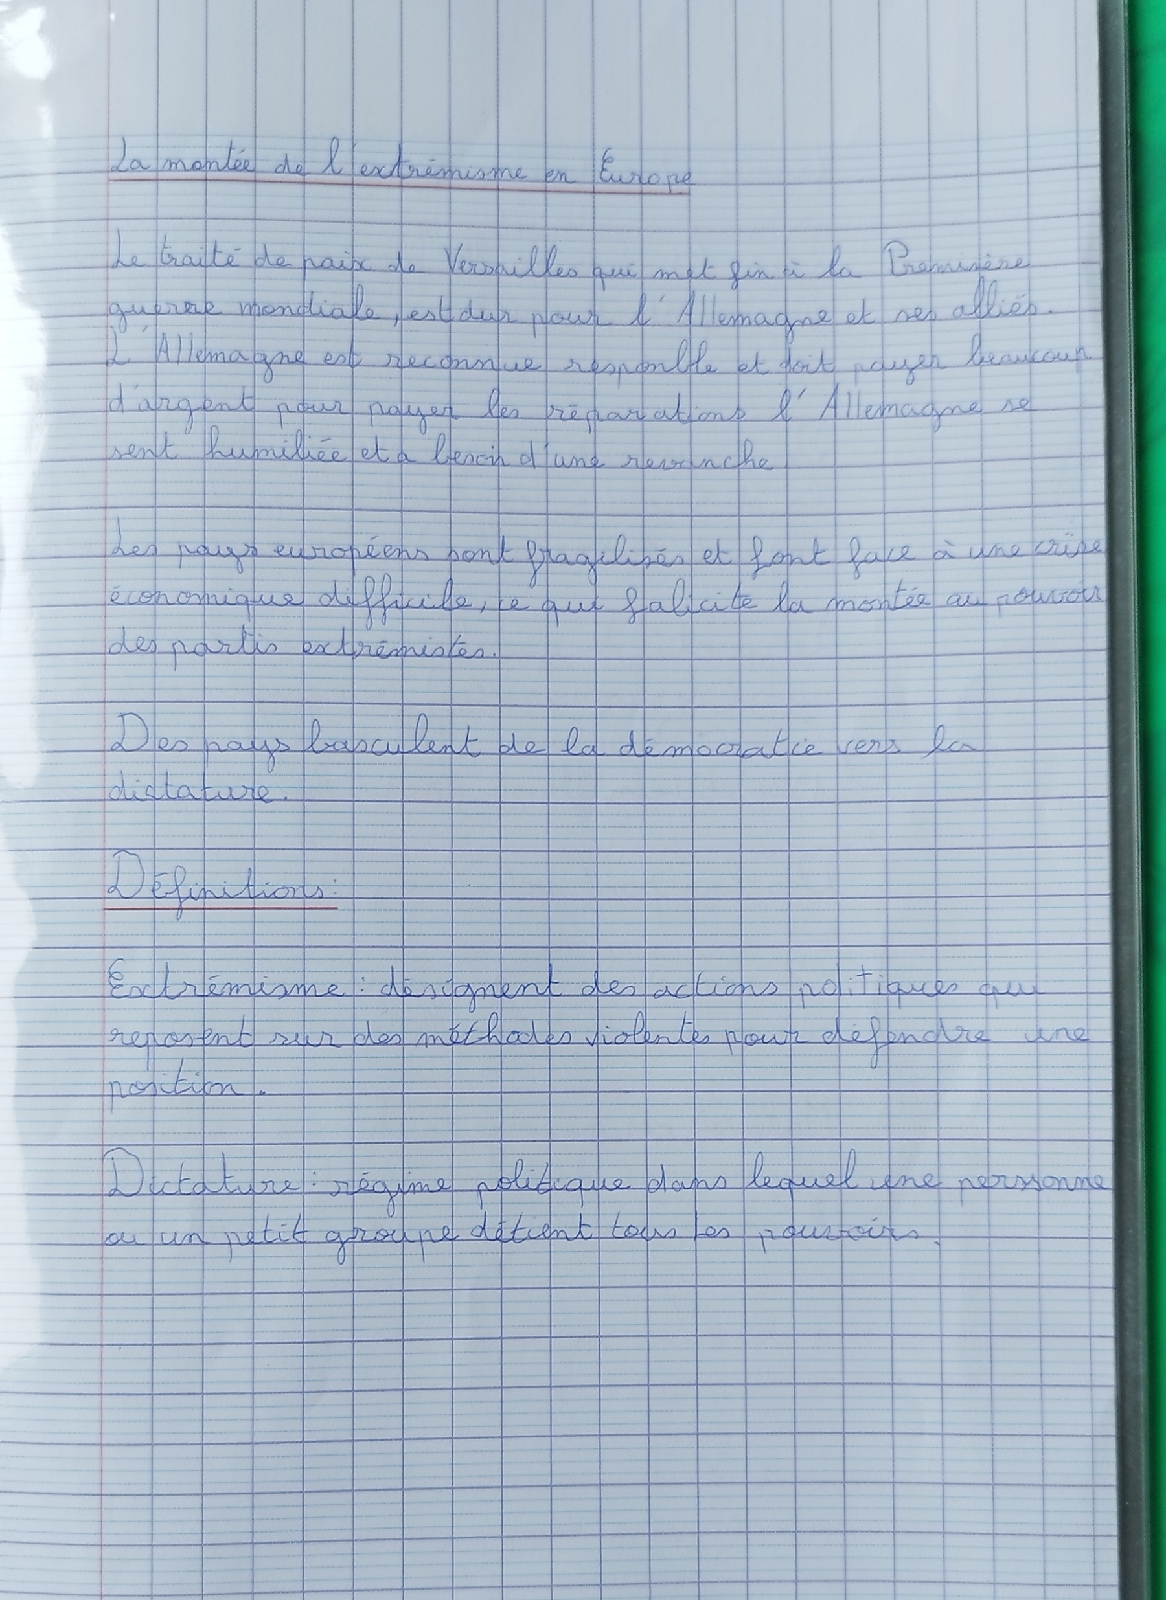 La montée de l'extrémisme en Europe
Le traité de paix de Versailles qui met fin à la Première
guerre mondiale, est dur pour l'Allemagne et ses alliés.
L'Allemagne est reconnue responble et doit payer beaucoup
d'argent pour payer les réparations l'Allemagne se
sent humiliée et a besoin d'une revanche
Les pays européens sont fragelisés et font face à une crise
économique difficile, ce qui falicite la montée au pouvoir
des partis extrémistes.
Des pays basculent de la démocratie vers la
dictature.
Définitions:
Extrémisme : désignent des actions politiques qui
reposent sur des méthodes violentes pour défendre une
position.
Dictature : régime politique dans lequel une perssonne
ou un petit groupe détient tous les pouvoirs.